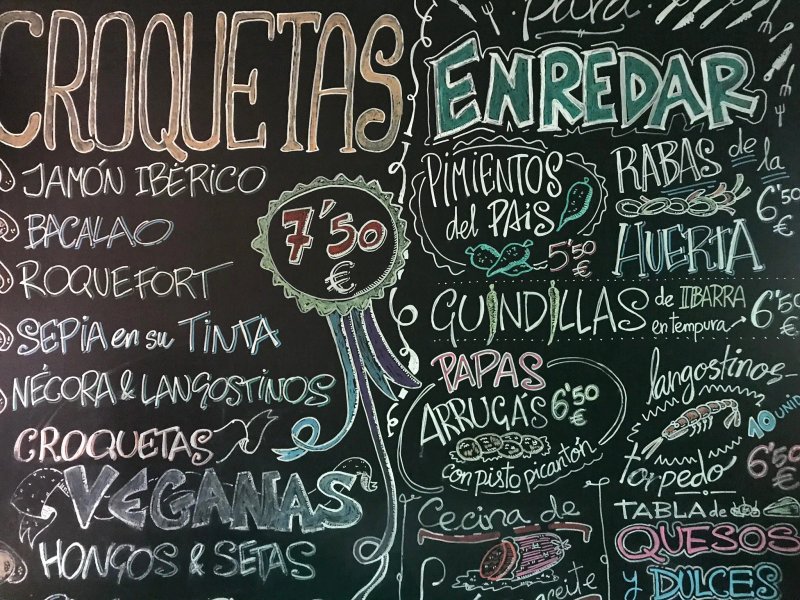 CROQUETAS
JAMÓN IBÉRICO
BACALAO
ROQUEFORT
SEPIA en su TINTA
NÉCORA & LANGOSTINOS
7'50
€
CROQUETAS
VEGANAS
HONGOS & SETAS
para
ENREDAR
PIMIENTOS
del PAIS
5'50
€
RABAS de la
HUERTA
6'50
€
GUINDILLAS de IBARRA
en tempura
6'50
€
PAPAS
ARRUGÁS 6'50
€
con pisto picantón
langostinos
10 UNID
torpedo
6'50
€
Cecina de
aceite
TABLA de
QUESOS
y DULCES